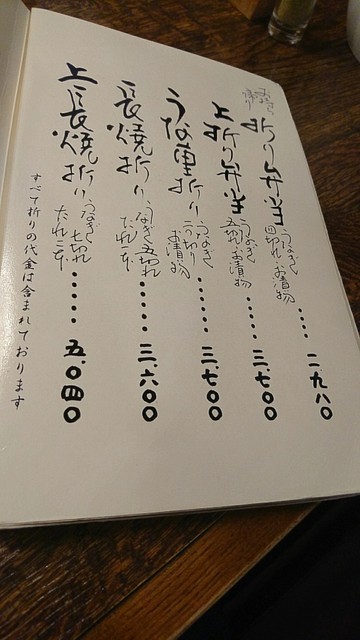 お持ち帰り
折り弁当 うなぎ四切れ・お漬物 ・・・・ 二.九八〇
上折り弁当 うなぎ五切れ・お漬物 ・・・・・ 三.七〇〇
うな重折り うなぎ二つ切り お漬物 ・・・・・・ 三.七〇〇
長焼折り うなぎ五切れ たれ二本 ・・・・・・ 三.六〇〇
上長焼折り うなぎ七切れ たれ三本 ・・・・・・ 五.〇四〇
すべて折りの代金は含まれております